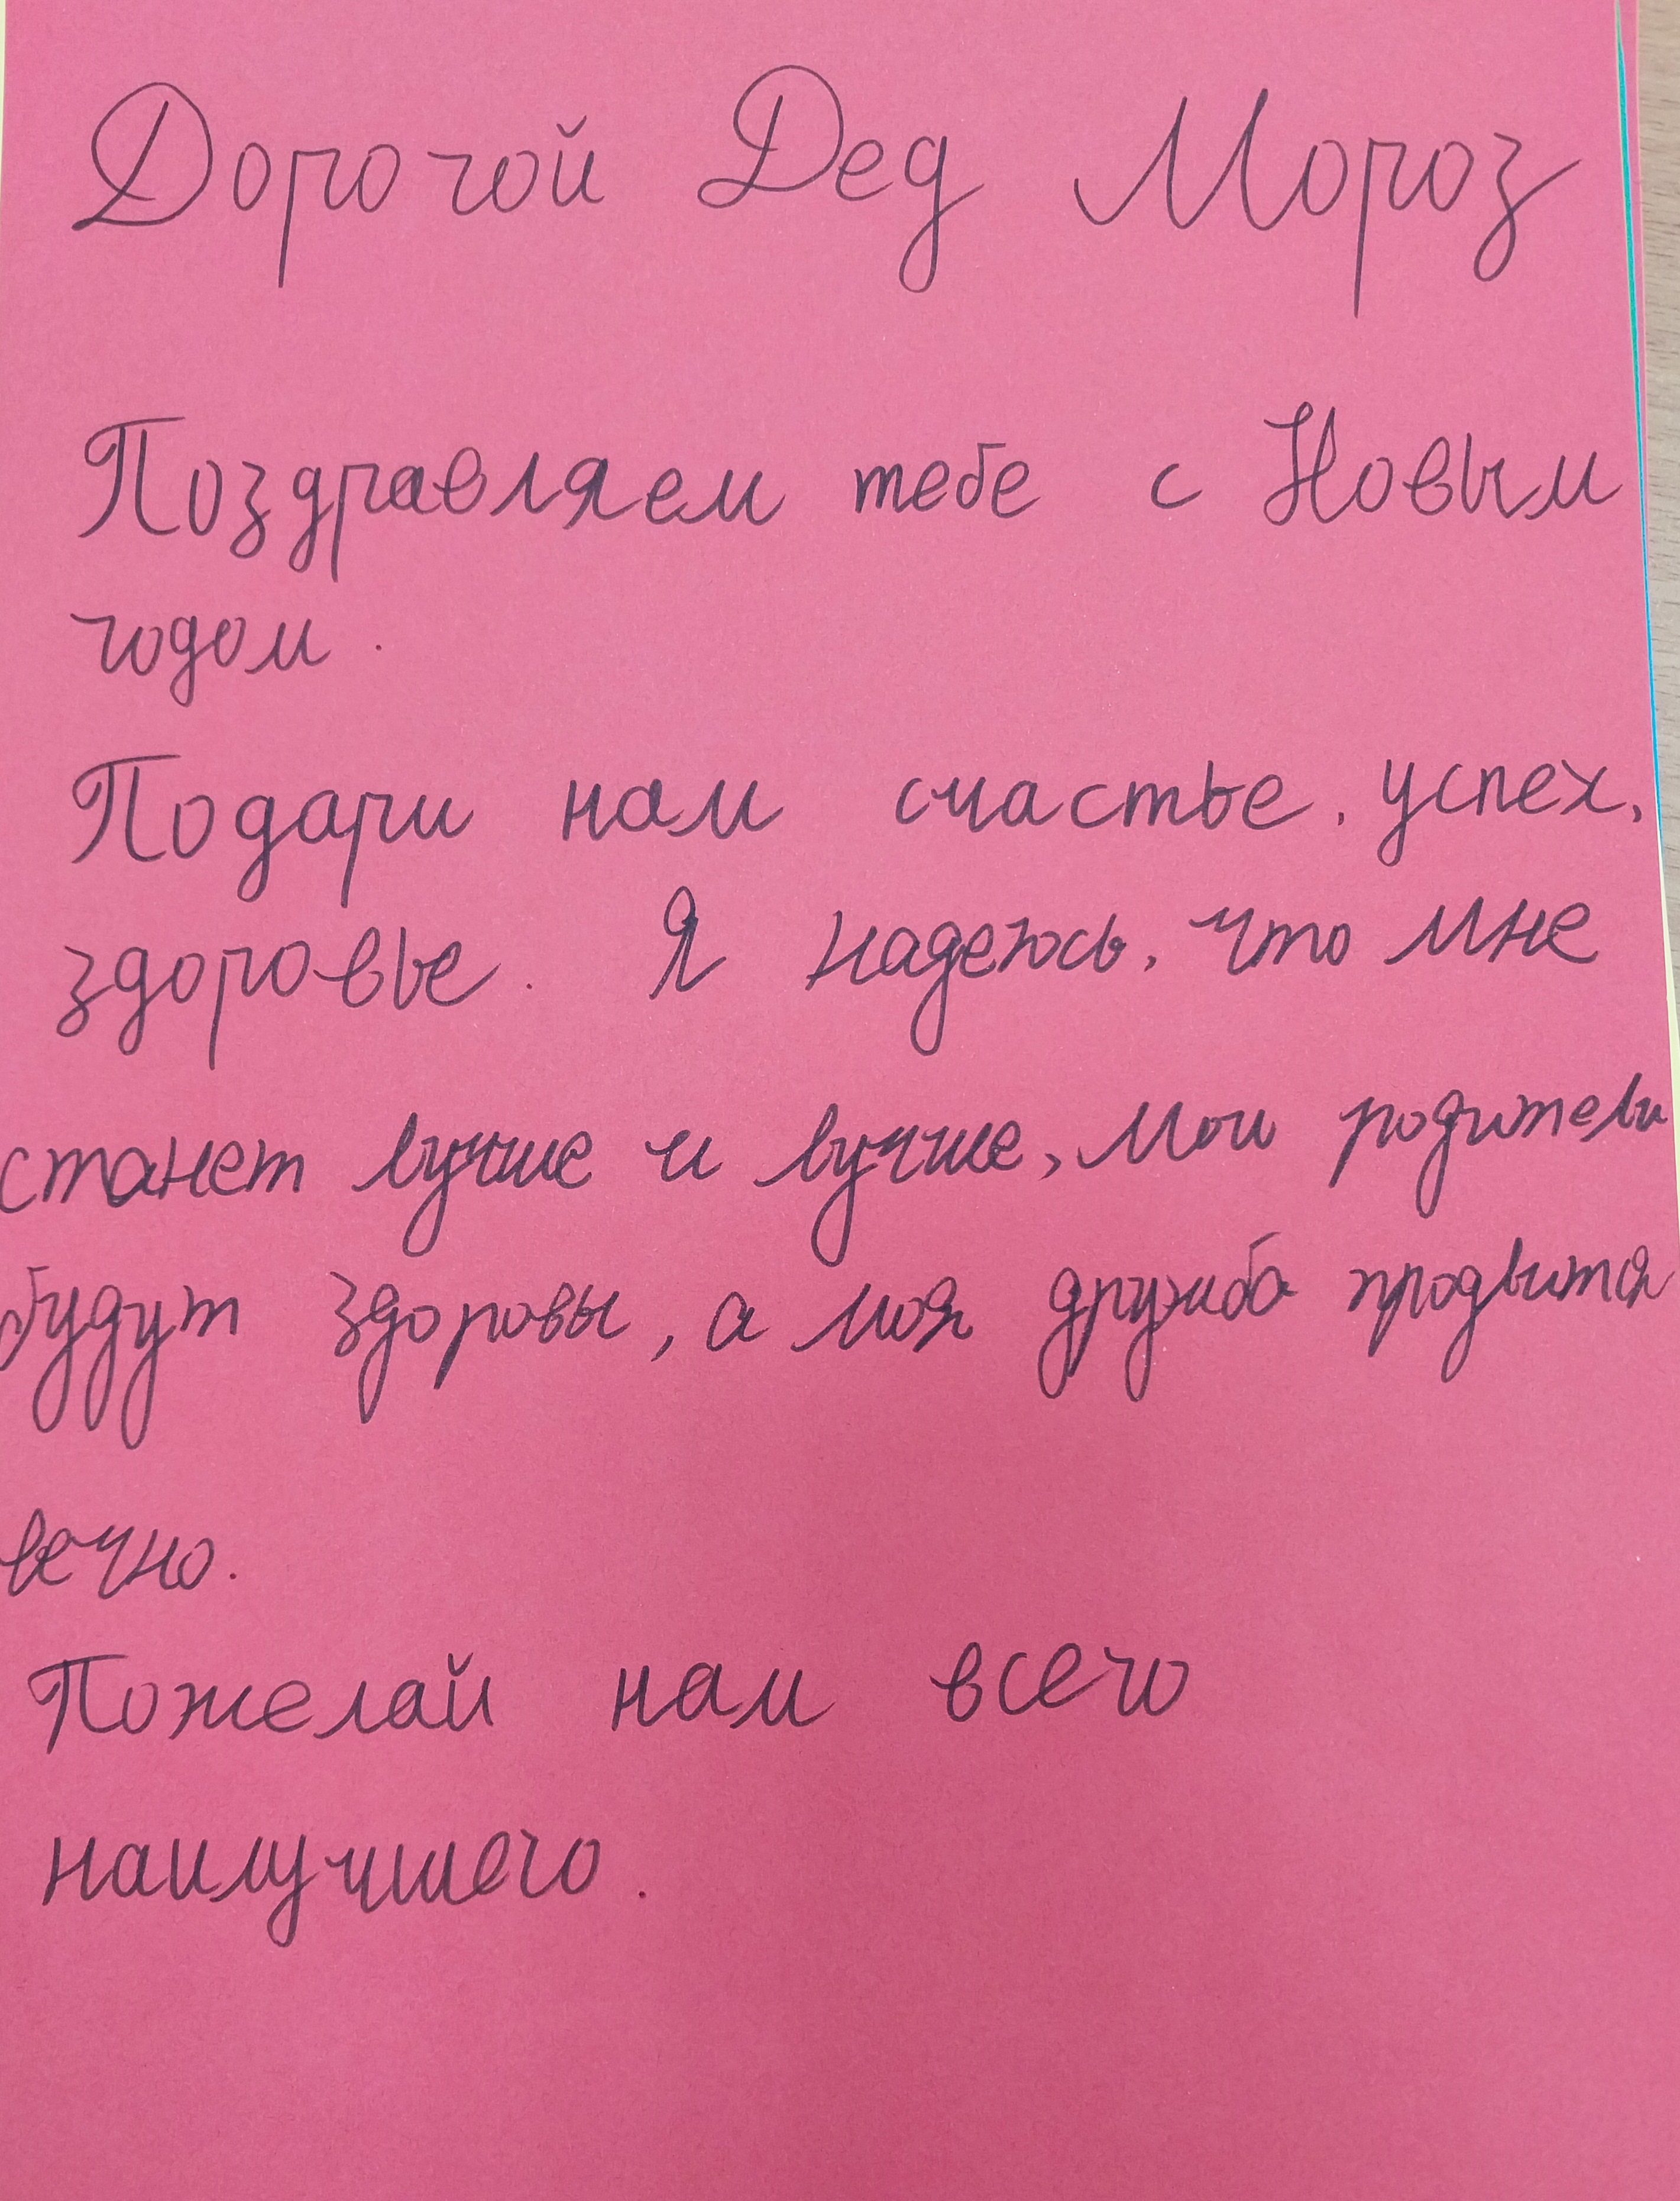 Дорогой Дед Мороз
Поздравляем тебе с Новым
годом.
Подари нам счастье, успех,
здоровье. Я надеюсь, что мне
станет лучше и лучше, мои родители
будут здоровы, а моя дружба продвится
вечно.
Пожелай нам всего
наилучшего.